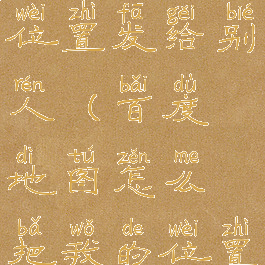 wèi zhì fā gěi bié
位置发给别
rén bǎi dù
人（百度
dì tú zěn me
地图怎么
bǎ wǒ de wèi zhì
把我的位置